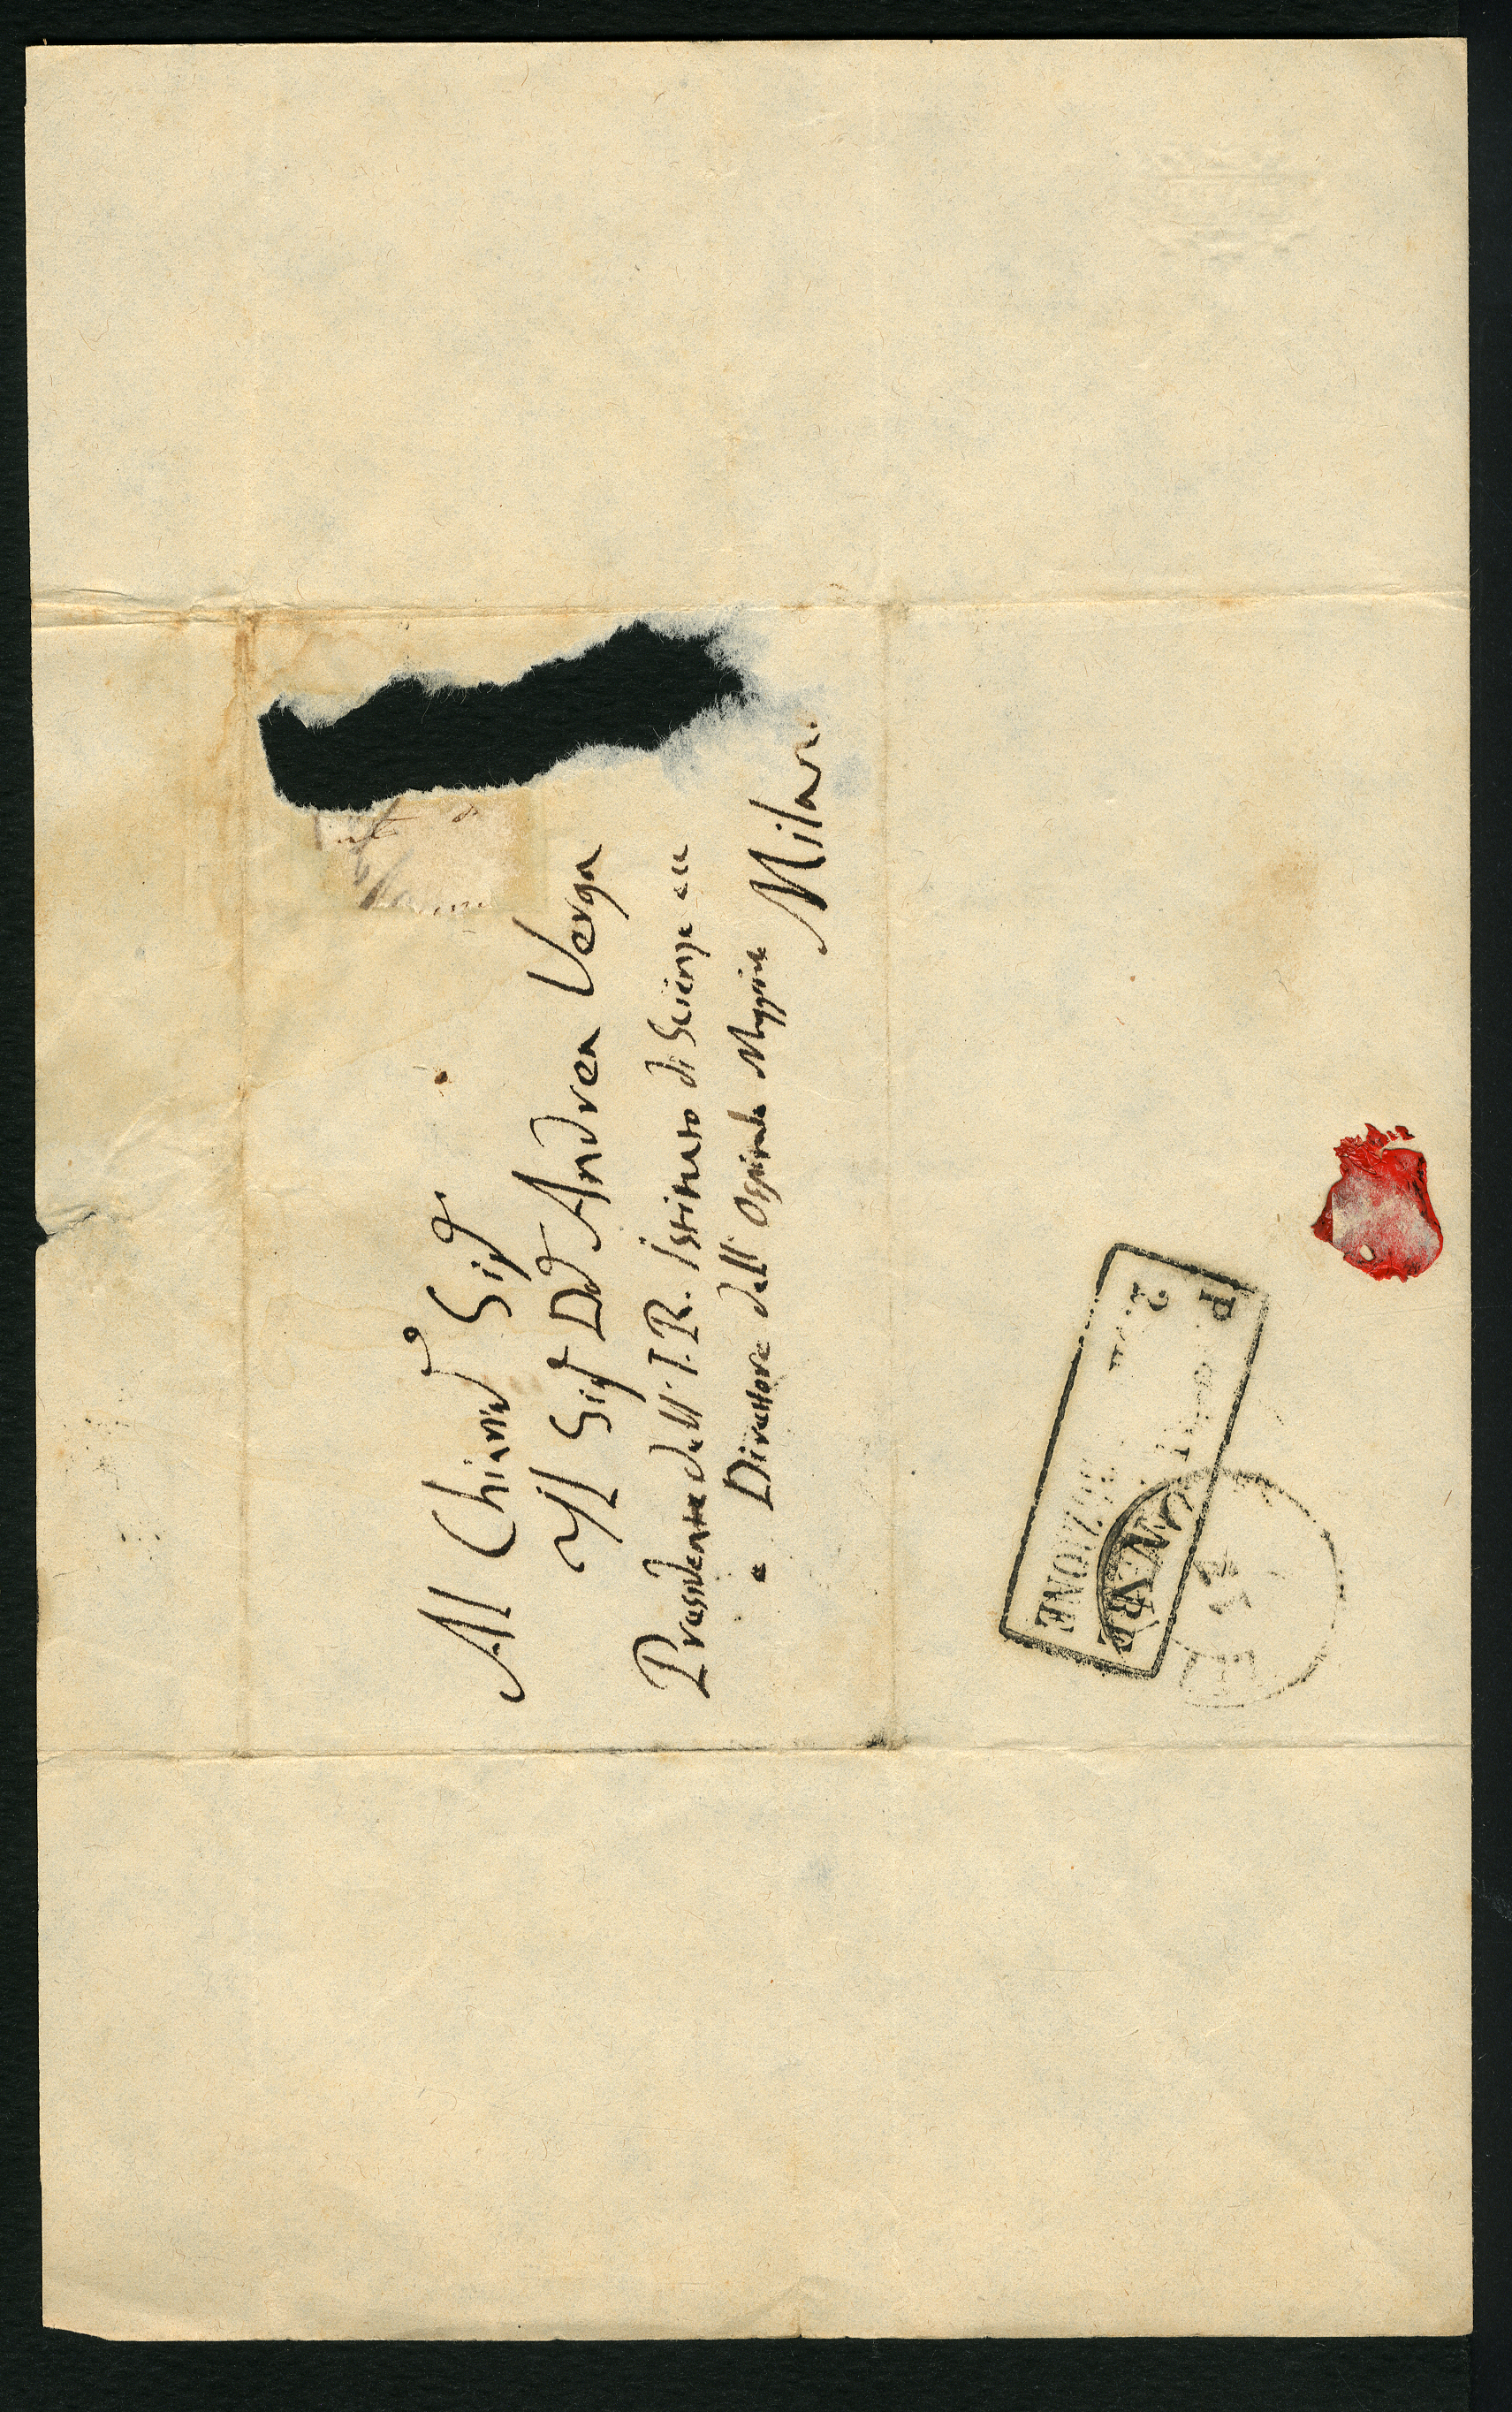 Al Chiarmo Sigr
Il Sigr Dr Andrea Verga
Presidente dell' I. R. Istituto di Scienze ec
e Direttore dell' Ospitale Maggiore
Milano
P
2.
BUZIONE